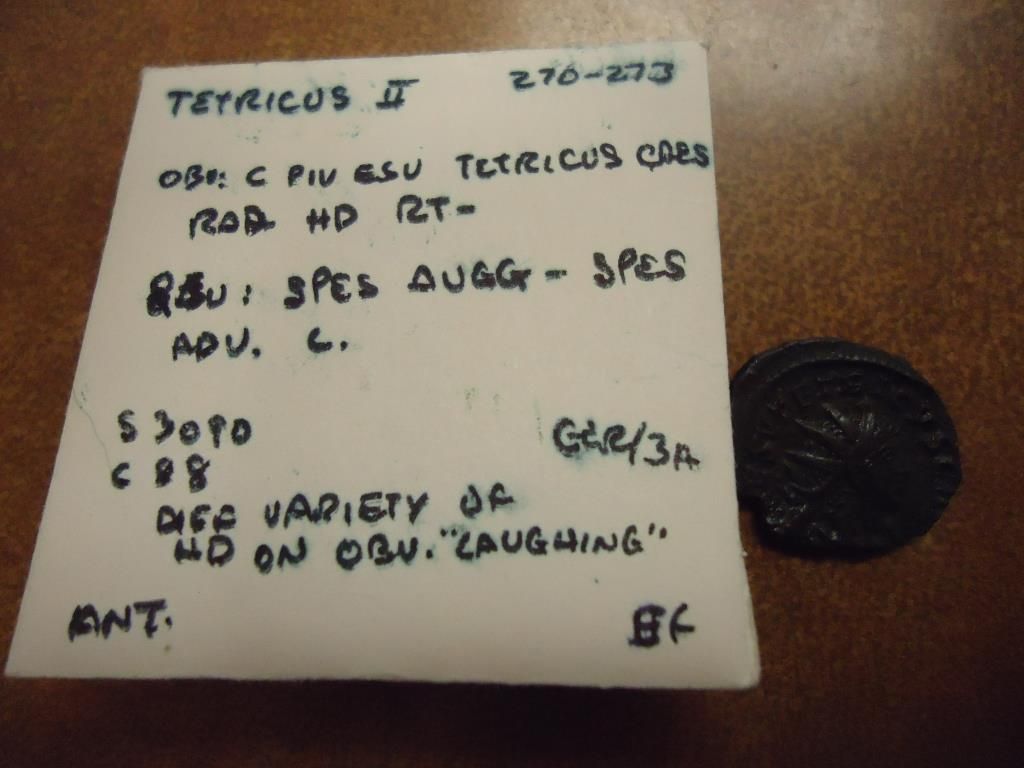 TETRICUS II 270-273
OBV: C PIV ESU TETRICUS CAES
RAD HD RT-
REV: SPES AUGG - SPES
ADV. C.
S 3090
C 88 GER/3A
DIFF VARIETY OF
HD ON OBV. "LAUGHING"
ANT. EF